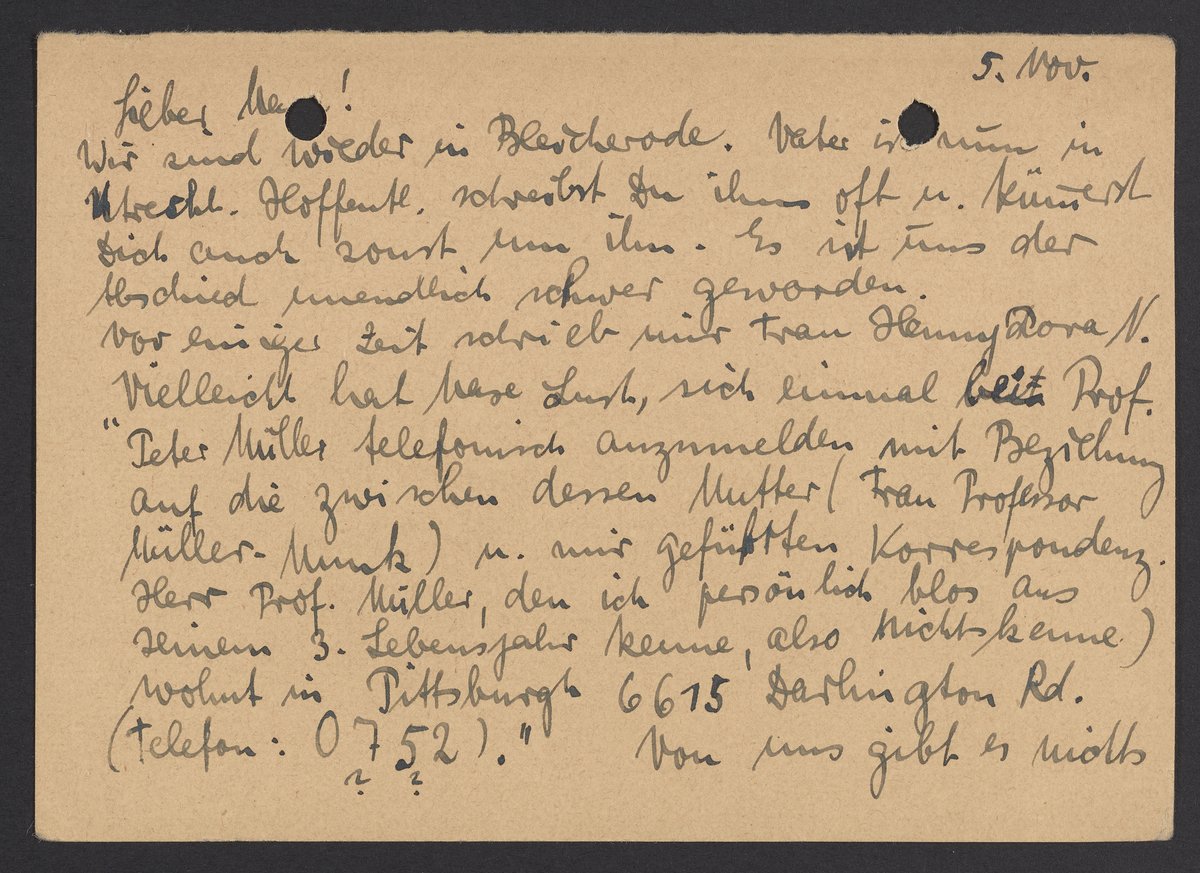 5. Nov.
Lieber !
Wir sind wieder in Bleicherode. Vater ist nun in
Utrecht. Hoffentl. schreibst Du ihm oft u. kümerst
Dich auch sonst um ihn. Es ist uns der
Abschied unendlich schwer geworden.
Vor einiger Zeit schrieb mir Frau Henny Dora N.
Vielleicht hat Hase Lust, sich einmal bei Prof.
"Peter Müller telefonisch anzumelden mit Beziehung
auf die zwischen dessen Mutter (Frau Professor
Müller-Munk) u. mir geführten Korrespondenz.
Herr Prof. Müller, den ich persönlich blos aus
seinem 3. Lebensjahr kenne, also nichtskenne)
wohnt in Pittsburgh 6615 Darlington Rd.
(Telefon: 0752)." Von uns gibt es nichts
? ?